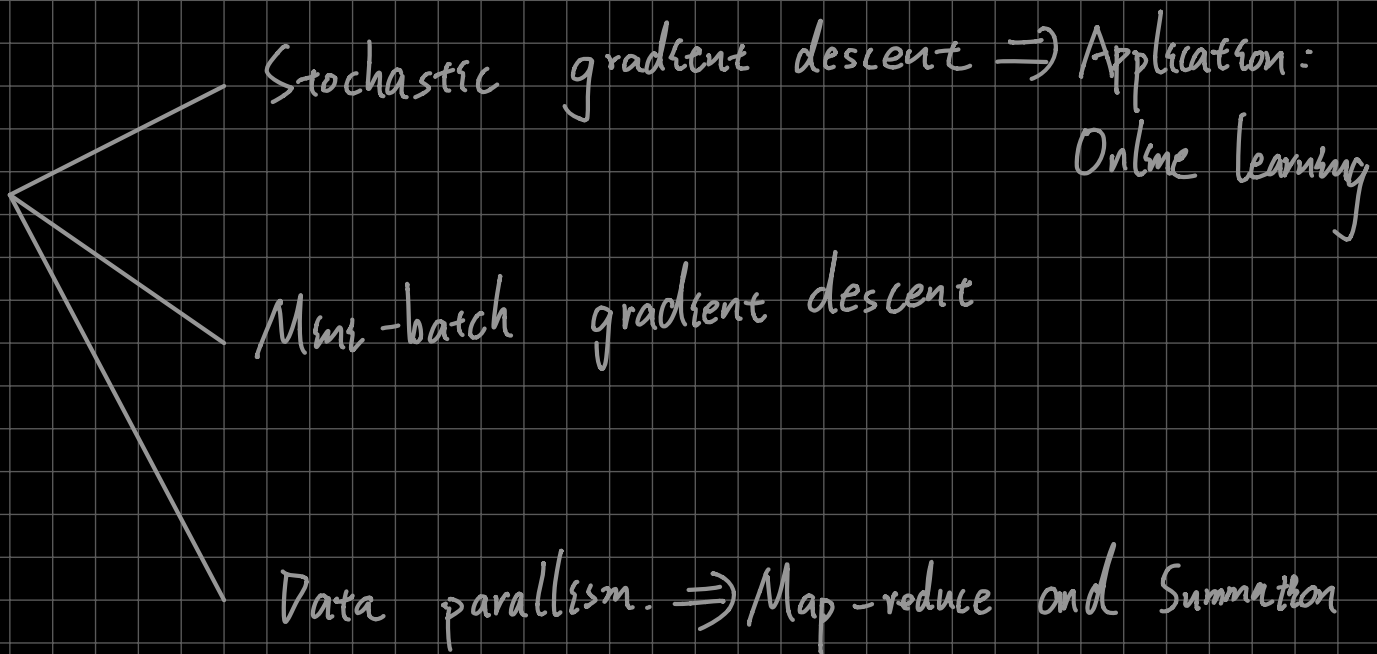 Stochastic gradient descent ⇒ Application:
Online learning
Mini-batch gradient descent
Data parallism. ⇒ Map-reduce and Summation